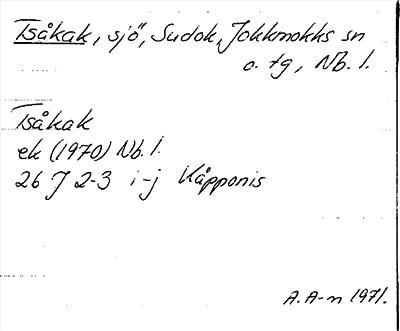 Tsåkak, sjö, Sudok, Jokkmokks sn
o. tg, Nb. l.
Tsåkak
ek (1970) Nb. l.
26 J 2-3 i-j Kåpponis
A. A-n 1971.